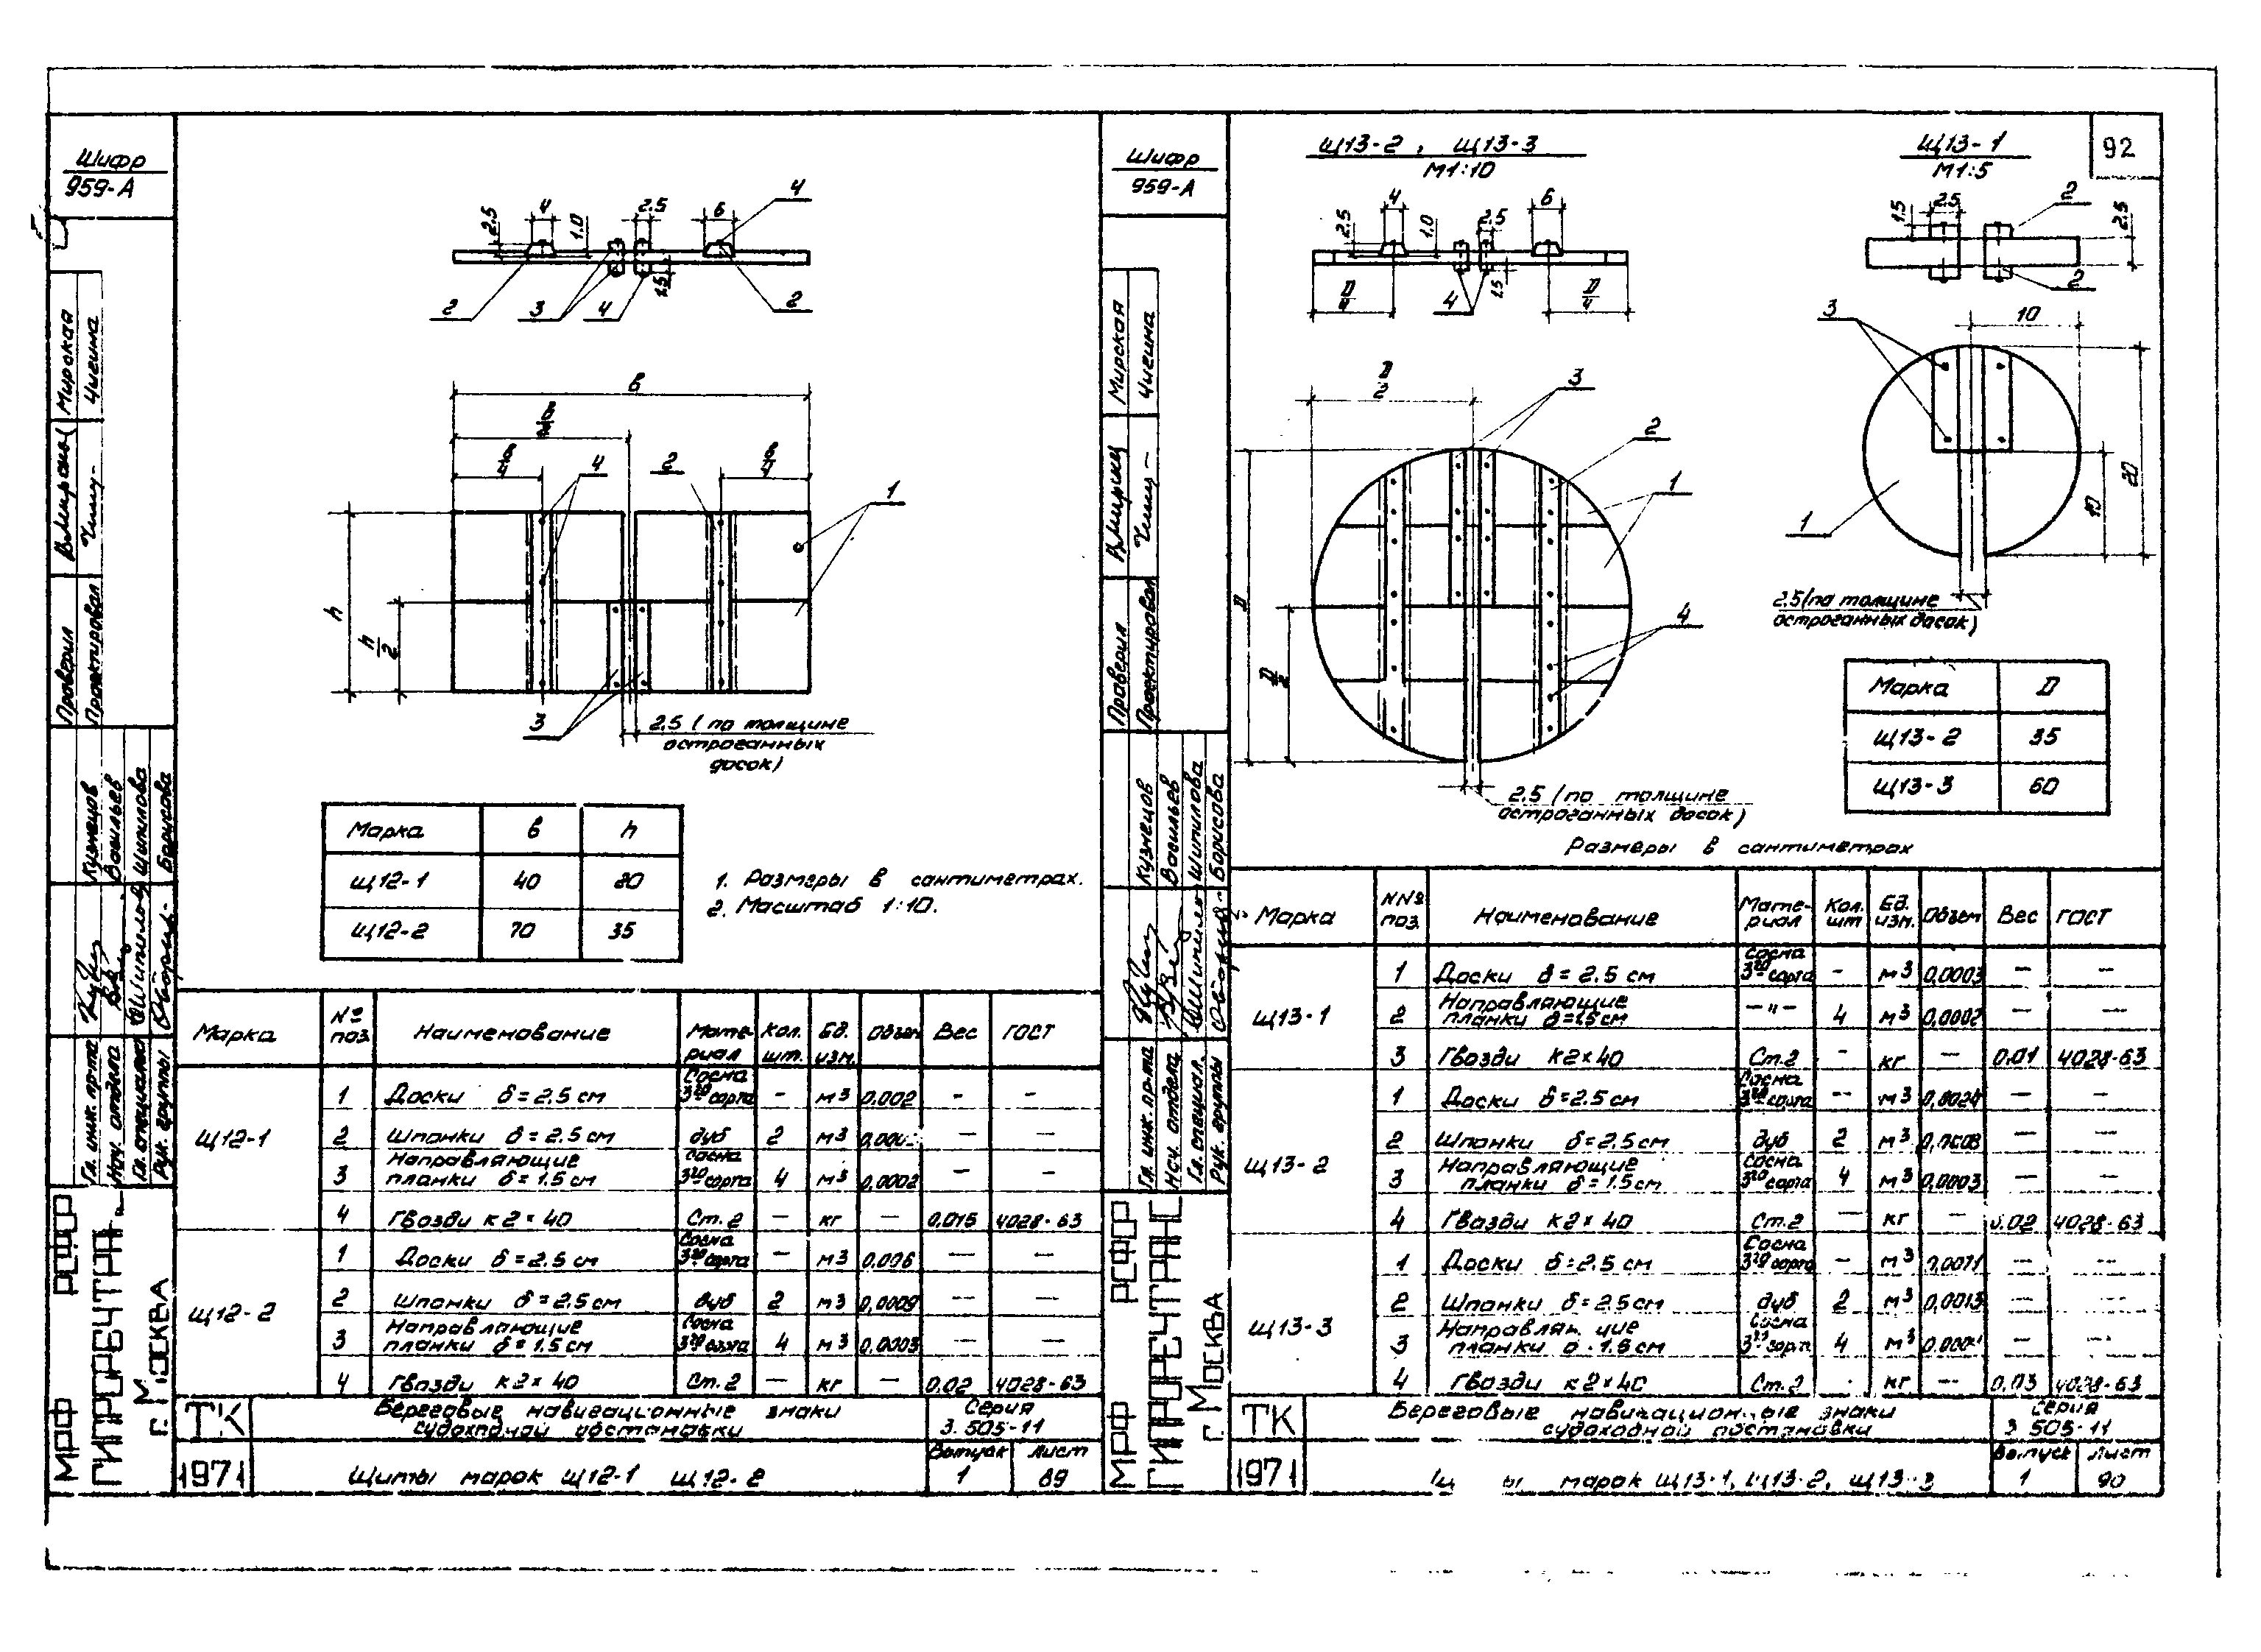 92
Шифр
959-А
4
2.5
4
1.0
2.5
6
1.5
2
3
4
2
в
в/2
в/4
4
2
в/4
1
h
h/2
3
2.5 (по толщине
остроганных
досок)
Марка в h
Щ12-1 40 20
Щ12-2 70 35
1. Размеры в сантиметрах.
2. Масштаб 1:10.
Марка № поз. Наименование Материал Кол. шт. Ед. изм. Объем Вес ГОСТ
Щ12-1
1 Доски δ = 2.5 см Сосна 3го сорта - м3 0,002 - -
2 Шпонки δ = 2.5 см дуб 2 м3 — —
3 Направляющие планки δ = 1.5 см Сосна 3го сорта 4 м3 0,0002 - —
4 Гвозди К2×40 Ст.2 — кг — 0,015 4028-63
Щ12-2
1 Доски δ = 2.5 см Сосна 3го сорта — м3 0,006 — —
2 Шпонки δ = 2.5 см дуб 2 м3 0,0009 — —
3 Направляющие планки δ = 1.5 см Сосна 3го сорта 4 м3 0,0003 — —
4 Гвозди К2×40 Ст.2 — кг — 0,02 4028-63
ТК
1971
Береговые навигационные знаки
судоходной обстановки
Серия
3.505-11
Щиты марок Щ12-1 Щ12-2
Выпуск
1
Лист
89
Проверил Мирская
Проектировал Чигина
Гл. инж. пр-та Кузнецов
Нач. отдела Васильев
Гл. специалист Шипилова
Рук. группы Борисова
МРФ РСФСР
ГИПРОРЕЧТРАНС
г. Москва
Шифр
959-А
Щ13-2, Щ13-3
М1:10
2.5
4
1.0
2.5
6
1.5
D/4
4
D/4
D/2
3
2
1
D
D/2
4
2.5 (по толщине
остроганных досок)
Щ13-1
М1:5
1.5
2.5
2
2.5
2
3
10
20
10
1
2.5 (по толщине
остроганных досок)
Марка D
Щ13-2 35
Щ13-3 60
Размеры в сантиметрах
Марка №№ поз. Наименование Материал Кол. шт Ед. изм. Объем Вес ГОСТ
Щ13-1
1 Доски δ = 2.5 см Сосна 3го сорта - м3 0,0003 — —
2 Направляющие планки δ = 1.5 см —"— 4 м3 0,0002 — —
3 Гвозди К2×40 Ст.2 - кг — 0.01 4028-63
Щ13-2
1 Доски δ = 2.5 см Сосна 3го сорта — м3 0,0024 — —
2 Шпонки δ = 2.5 см дуб 2 м3 0,0008 — —
3 Направляющие планки δ = 1.5 см Сосна 3го сорта 4 м3 0,0003 — —
4 Гвозди К2×40 Ст.2 — кг — 0.02 4028-63
Щ13-3
1 Доски δ = 2.5 см Сосна 3го сорта — м3 0,0071 — —
2 Шпонки δ = 2.5 см дуб 2 м3 0,0013 — —
3 планки 1.5 см Сосна 4 м3 — —
4 Гвозди К2×40 Ст.2 кг — 0,03 4028-63
ТК
1971
Береговые навигационные знаки
судоходной обстановки
Серия
3.505-11
марок Щ13-1, Щ13-2, Щ13-3
Выпуск
1
Лист
90
Проверил Мирская
Проектировал Чигина
Гл. инж. пр-та Кузнецов
Нач. отдела Васильев
Гл. специал. Шипилова
Рук. группы Борисова
МРФ РСФСР
ГИПРОРЕЧТРАНС
г. Москва